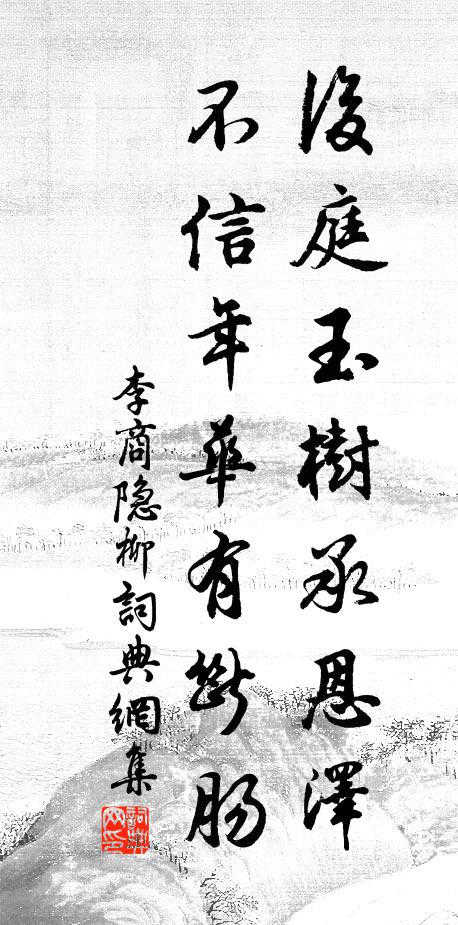 後庭玉樹承恩澤
不信年華有斷腸
李商隐柳詞典網集